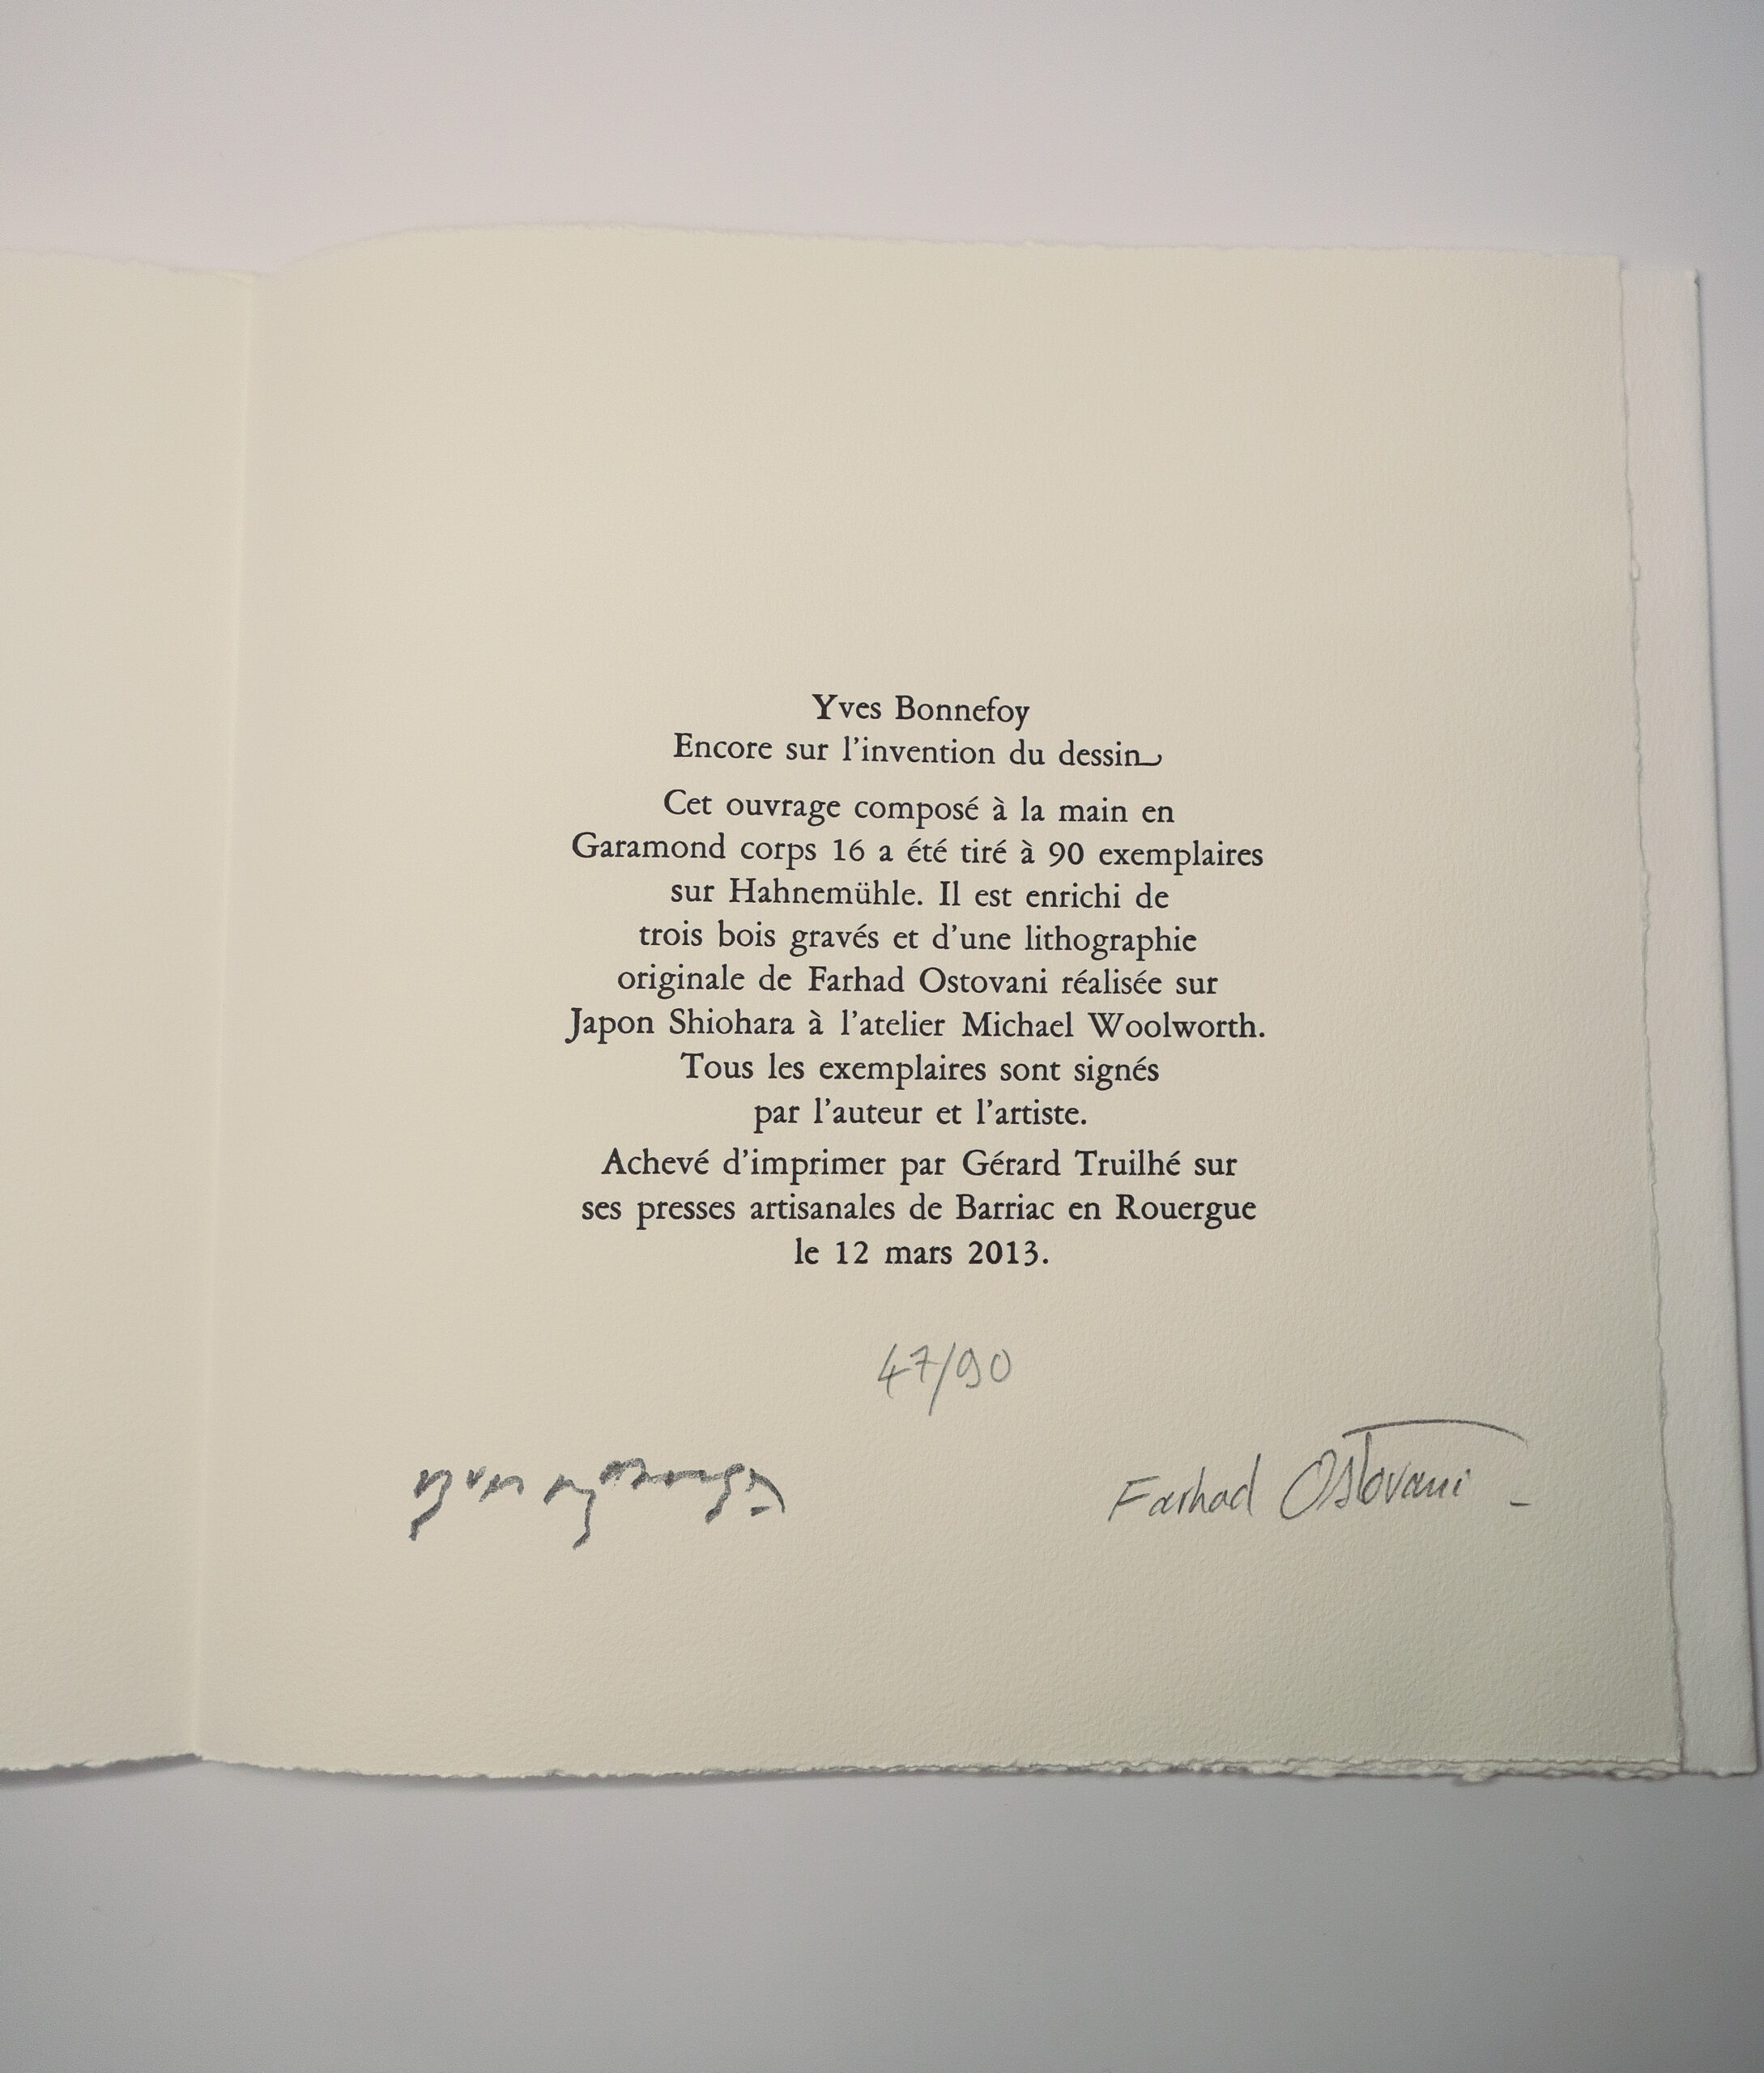 Yves Bonnefoy
Encore sur l’invention du dessin
Cet ouvrage composé à la main en
Garamond corps 16 a été tiré à 90 exemplaires
sur Hahnemühle. Il est enrichi de
trois bois gravés et d’une lithographie
originale de Farhad Ostovani réalisée sur
Japon Shiohara à l’atelier Michael Woolworth.
Tous les exemplaires sont signés
par l’auteur et l’artiste.
Achevé d’imprimer par Gérard Truilhé sur
ses presses artisanales de Barriac en Rouergue
le 12 mars 2013.
47/90
Farhad Ostovani